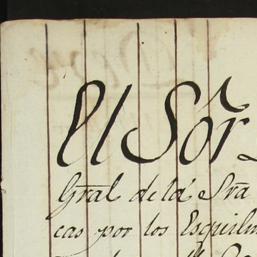 El Sõr
Gral de la Sra
cas por los Esquilm